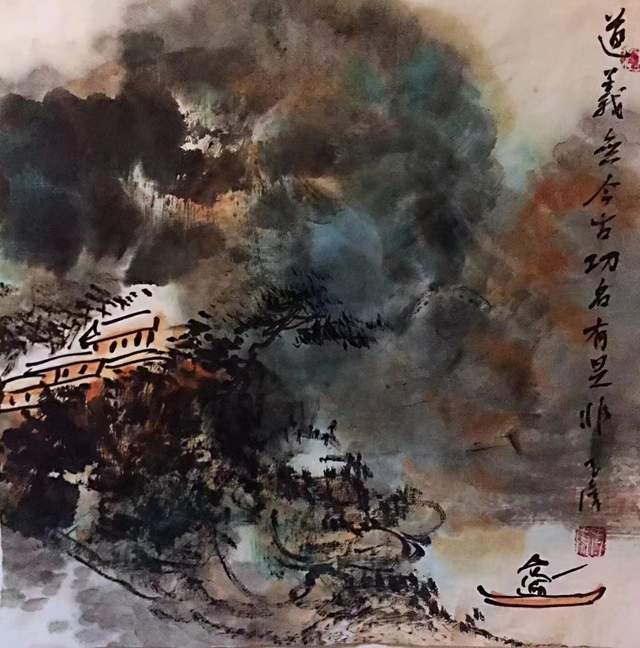 道義無今古功名有是非